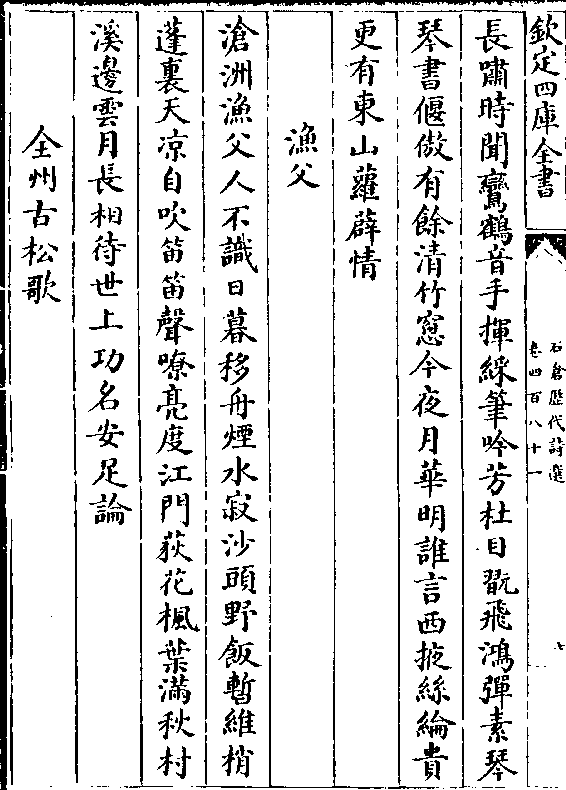 欽定四庫全書
石倉歷代詩選
卷四百八十一
七
長嘯時聞鸞鶴音手揮綵筆吟芳杜目翫飛鴻彈素琴
琴書偃傲有餘清竹窻今夜月華明誰言西掖絲綸貴
更有東山蘿薜情
漁父
滄洲漁父人不識日暮移舟煙水寂沙頭野飯暫維梢
蓬裏天凉自吹笛笛聲嘹亮度江門荻花楓葉滿秋村
溪邊雲月長相待世上功名安足論
全州古松歌